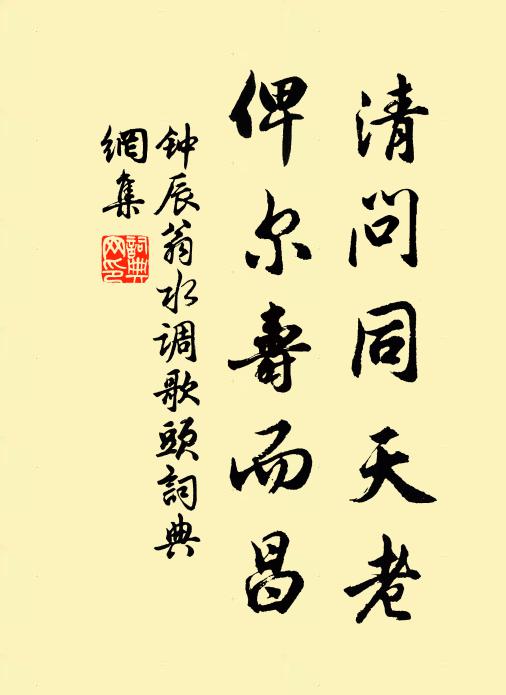 清问同天老
俾尔壽而昌
钟辰翁水调歌頭詞典
網集
詞典
网印